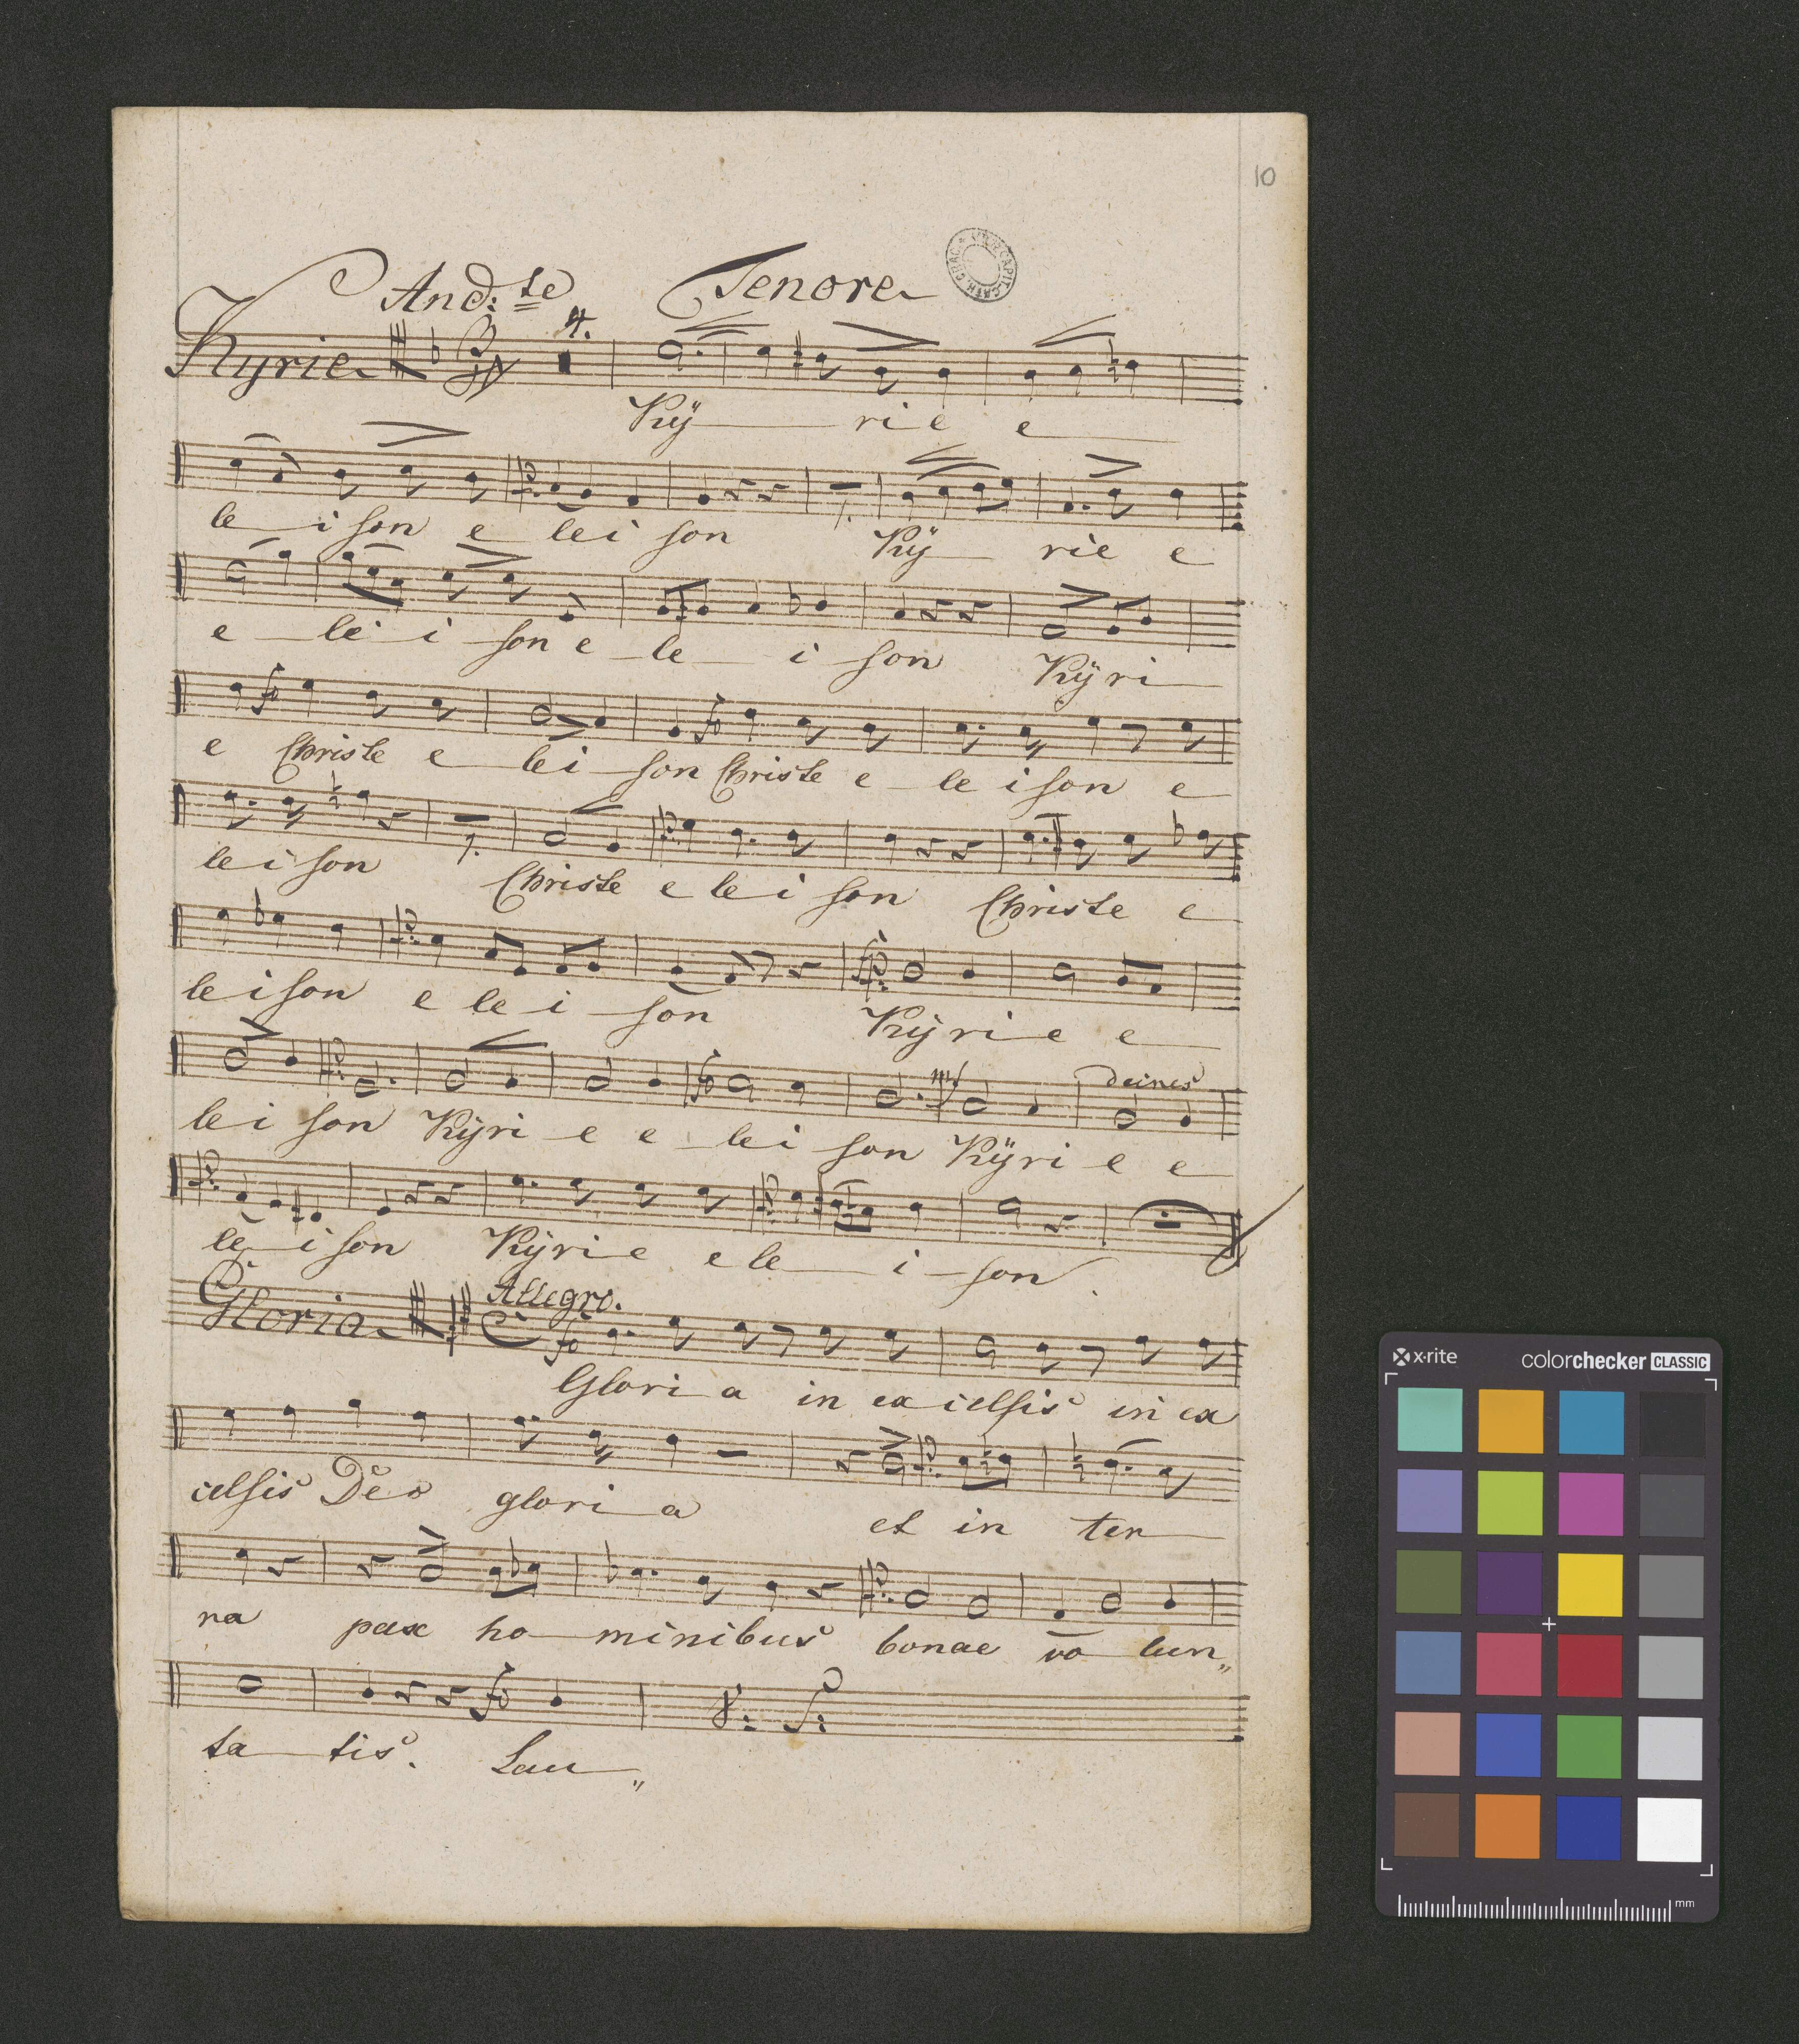 10
And:te Tenore
4.
Kyrie
Kÿ rie e
le i son e lei son Kÿ rie e
e le i son e le i son Kÿri
e Christe e lei son Christe e le ison e
lei son Christe e lei son Christe e
leison e le i son Kÿri e e
lei son Kÿri e e lei son Kÿri e e
le ison Kÿrie e le i son
Allegro.
Gloria
fo
Glori a in ex celsis in ex
celsis Deo glori a et in ter
ra pax ho minibus bonae vo lun„
fo
ta tis. Lau„
x-rite colorchecker CLASSIC
mm